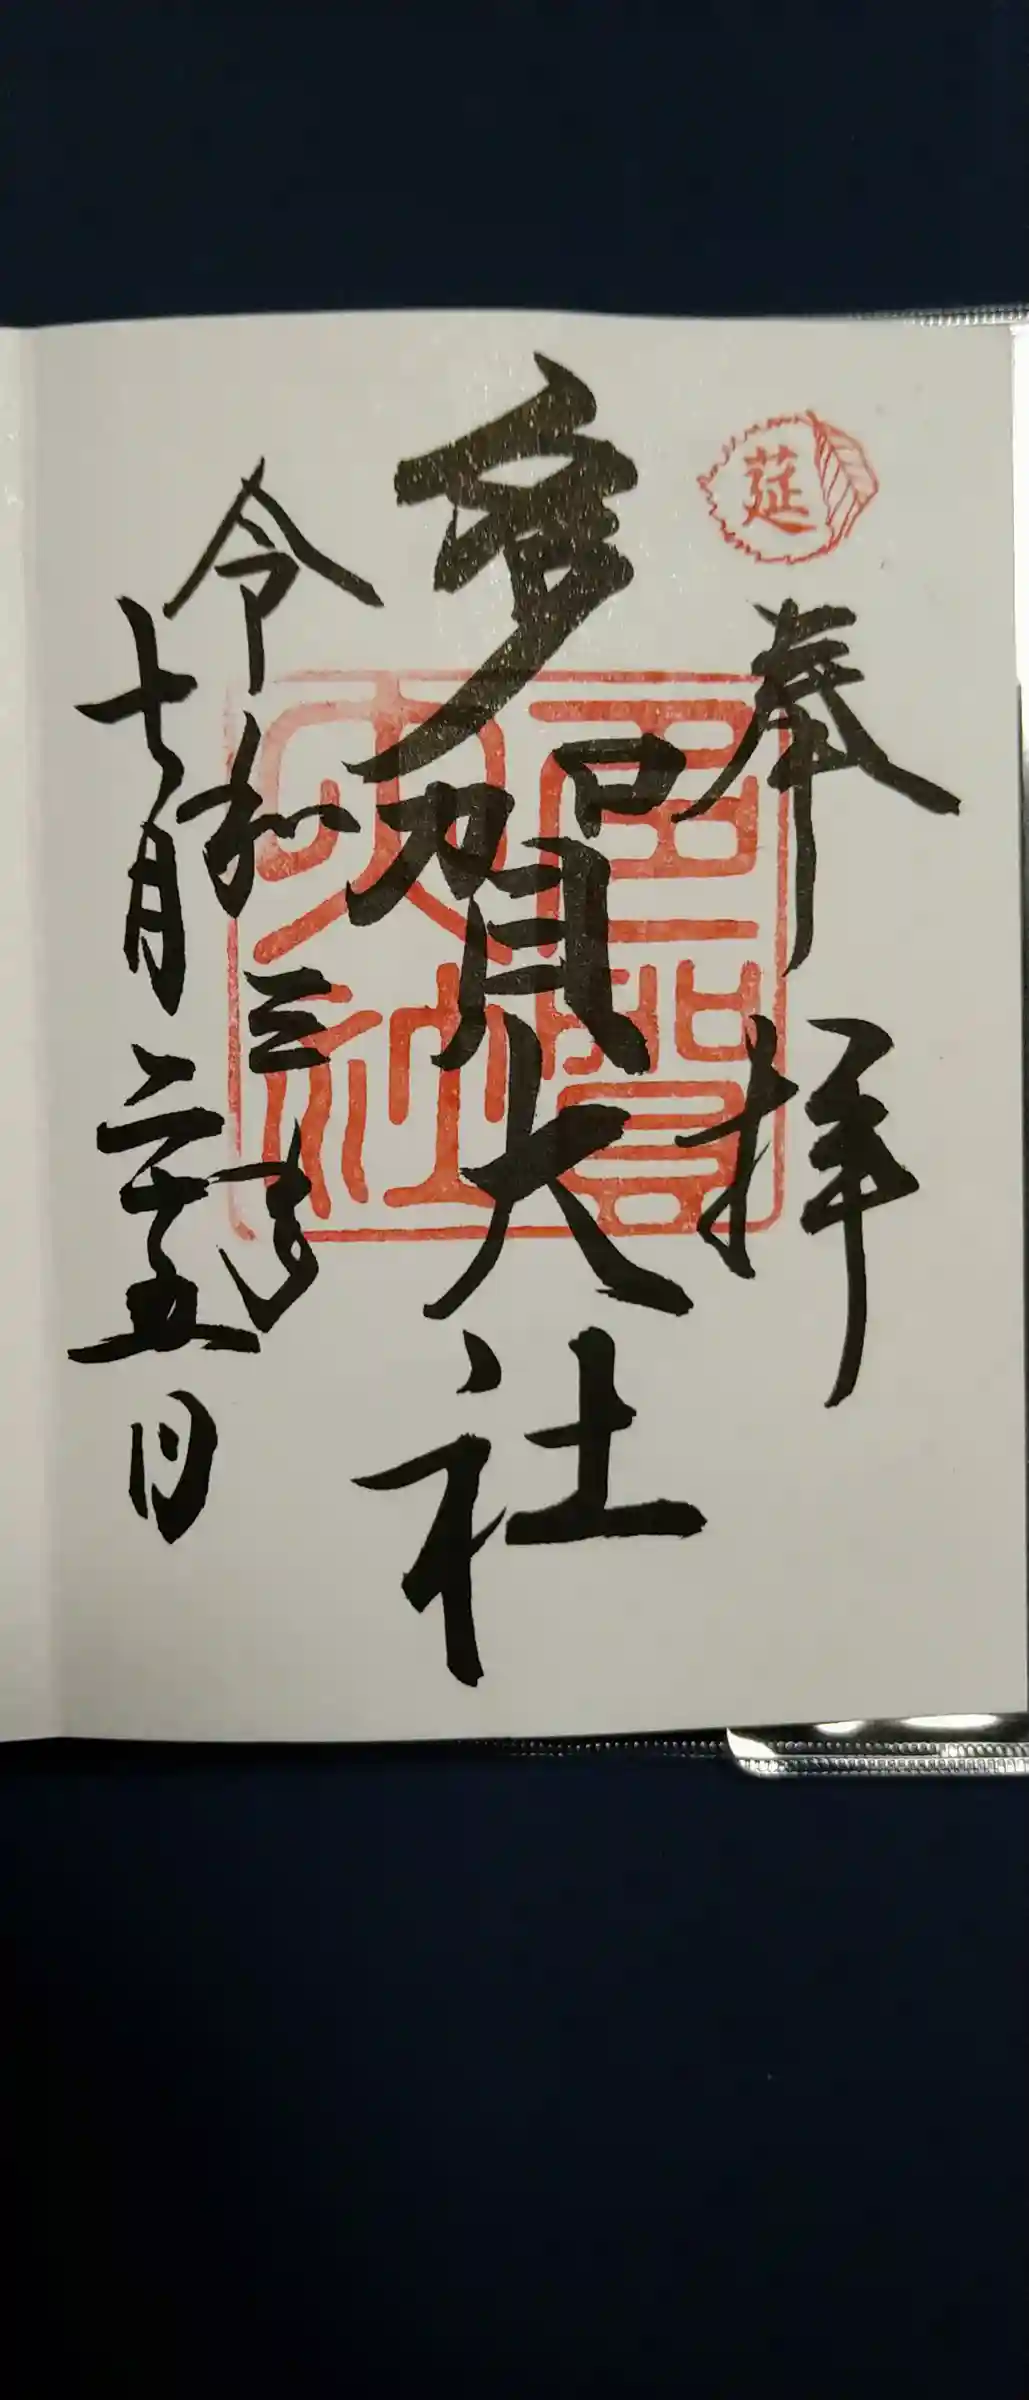 莚
奉拝
多賀大社
多賀
大社
令和三年
十一月二十五日